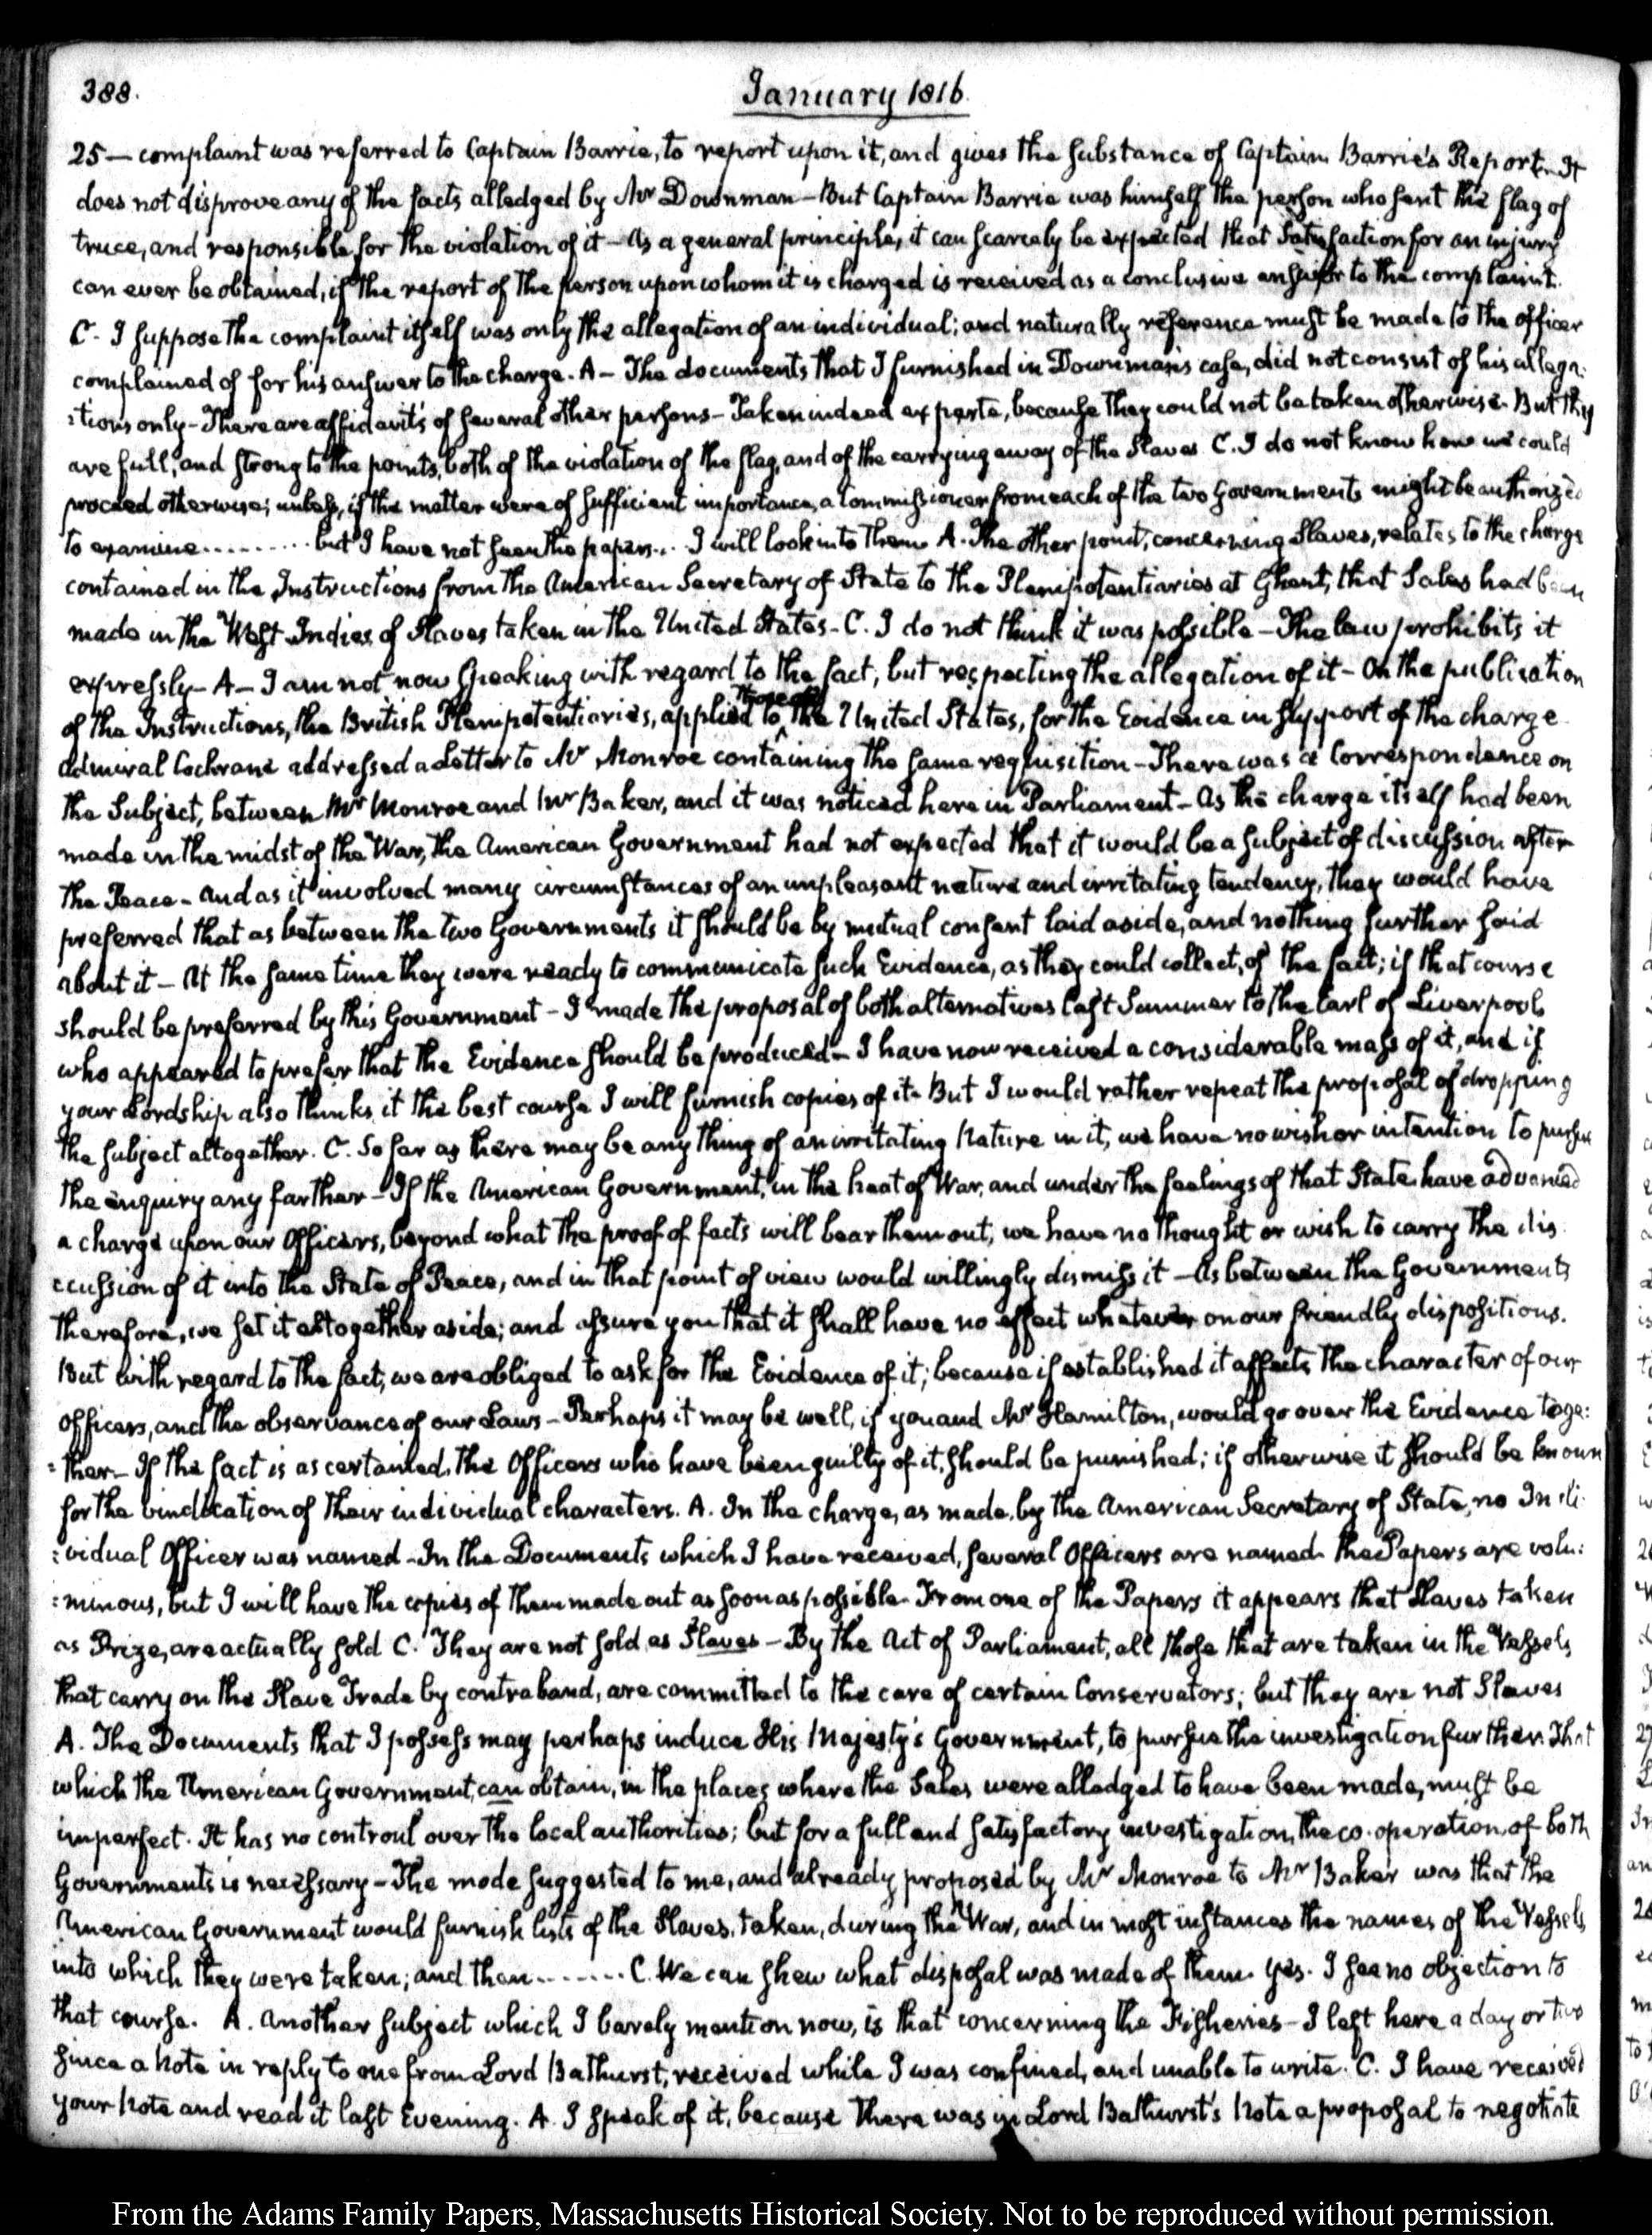 388.
January 1816.
25 — complaint was referred to Captain Barrie, to report upon it, and gives the substance of Captain Barrie's Report. It
does not disprove any of the facts alledged by Mr Downman — But Captain Barrie was himself the person who sent the flag of
truce, and responsible for the violation of it — As a general principle, it can scarcely be expected that satisfaction for an injury
can ever be obtained, if the report of the person upon whom it is charged is received as a conclusive answer to the complaint.
C. I suppose the complaint itself was only the allegation of an individual; and naturally reference must be made to the officer
complained of for his answer to the charge. A — The documents that I furnished in Downman's case, did not consist of his allega:
:tions only — There are affidavits of several other persons — Taken indeed ex parte, because they could not be taken otherwise. But they
are full, and strong to the points, both of the violation of the flag, and of the carrying away of the Slaves. C. I do not know how we could
proceed otherwise; unless, if the matter were of sufficient importance, a Commissioner from each of the two Governments might be authorized
to examine.......... but I have not seen the papers... I will look into them. A. The other point, concerning Slaves, relates to the charge
contained in the Instructions from the American Secretary of State to the Plenipotentiaries at Ghent, that Sales had been
made in the West Indies of Slaves taken in the United States — C. I do not think it was possible — The law prohibits it
expressly — A — I am not now speaking with regard to the fact, but respecting the allegation of it — On the publication
of the Instructions, the British Plenipotentiaries, applied to those of the United States, for the Evidence in support of the charge
Admiral Cochrane addressed a Letter to Mr Monroe containing the same requisition — There was a Correspondence on
the Subject, between Mr Monroe and Mr Baker, and it was noticed here in Parliament — As the charge itself had been
made in the midst of the War, the American Government had not expected that it would be a subject of discussion after
the Peace — And as it involved many circumstances of an unpleasant nature and irritating tendency, they would have
preferred that as between the two Governments it should be by mutual consent laid aside, and nothing further said
about it — At the same time they were ready to communicate such Evidence, as they could collect, of the fact; if that course
should be preferred by this Government — I made the proposal of both alternatives last Summer to the Earl of Liverpool
who appeared to prefer that the Evidence should be produced — I have now received a considerable mass of it, and if
your Lordship also thinks it the best course I will furnish copies of it. But I would rather repeat the proposal of dropping
the subject altogether. C. So far as there may be any thing of an irritating Nature in it, we have no wish or intention to pursue
the enquiry any farther — If the American Government, in the heat of War, and under the feelings of that State have advanced
a charge upon our Officers, beyond what the proof of facts will bear them out, we have no thought or wish to carry the dis
:cussion of it into the State of Peace, and in that point of view would willingly dismiss it — As between the Governments
therefore, we set it altogether aside; and assure you that it shall have no effect whatever on our friendly dispositions.
But with regard to the fact, we are obliged to ask for the Evidence of it; because if established it affects the character of our
officers, and the observance of our Laws — Perhaps it may be well, if you and Mr Hamilton, would go over the Evidence toge:
:ther — If the fact is ascertained, the Officers who have been guilty of it, should be punished; if otherwise it should be known
for the vindication of their individual characters. A. In the charge, as made, by the American Secretary of State, no Indi
:vidual Officer was named — In the Documents which I have received, several Officers are named. The Papers are volu:
:minous, but I will have the copies of them made out as soon as possible. From one of the Papers it appears that Slaves taken
as Prize, are actually sold C. They are not sold as Slaves — By the Act of Parliament, all those that are taken in the Vessels
that carry on the Slave Trade by contraband, are committed to the care of certain Conservators; but they are not Slaves
A. The Documents that I possess may perhaps induce His Majesty's Government, to pursue the investigation further. That
which the American Government, can obtain, in the places where the Sales were alledged to have been made, must be
imperfect. It has no controul over the local authorities; but for a full and satisfactory investigation, the co-operation, of both
Governments is necessary — The mode suggested to me, and already proposed by Mr Monroe to Mr Baker was that the
American Government would furnish lists of the Slaves, taken, during the War, and in most instances the names of the Vessels
into which they were taken; and then....... C. We can shew what disposal was made of them. Yes. I see no objection to
that course. A. Another subject which I barely mention now, is that concerning the Fisheries — I left here a day or two
since a Note in reply to one from Lord Bathurst, received while I was confined, and unable to write. C. I have received
your Note and read it last Evening. A. I speak of it, because there was in Lord Bathurst's Note a proposal to negotiate
From the Adams Family Papers, Massachusetts Historical Society. Not to be reproduced without permission.